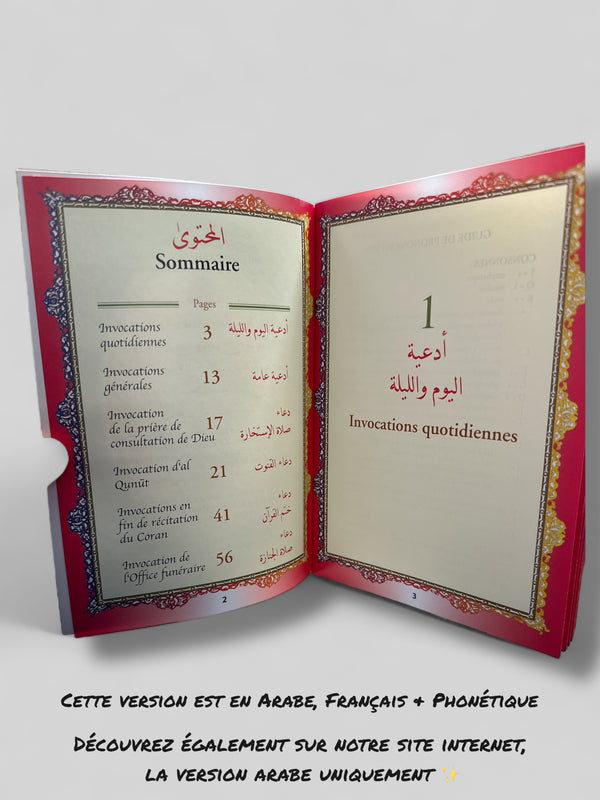 المحتوى
Sommaire
Pages
Invocations
quotidiennes
3
أدعية اليوم والليلة
Invocations
générales
13
أدعية عامة
Invocation
de la prière de
consultation de Dieu
17
دعاء
صلاة الإستخارة
Invocation d'al
Qunût
21
دعاء القنوت
Invocations en
fin de récitation
du Coran
41
دعاء
ختم القرآن
Invocation de
l'Office funéraire
56
دعاء
صلاة الجنازة
2
1
أدعية
اليوم والليلة
Invocations quotidiennes
3
Cette version est en Arabe, Français & Phonétique
Découvrez également sur notre site internet,
la version arabe uniquement ✨